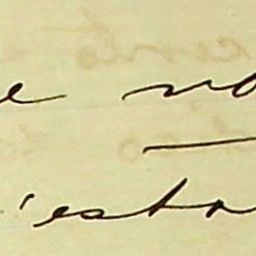 e no
'esta